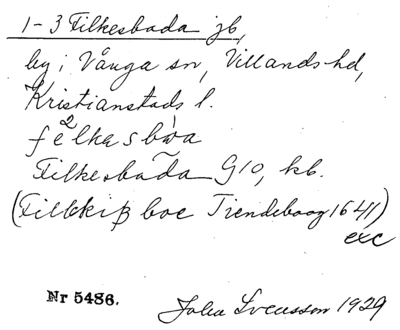 1-3 Filkesboda jb,
by i Vånga sn, Villands hd,
Kristianstads l.
Filkesboda G10, kb.
(Filkkiß boe Tiendeboog 1641)
exc
Nr 5486.
John Svensson 1929